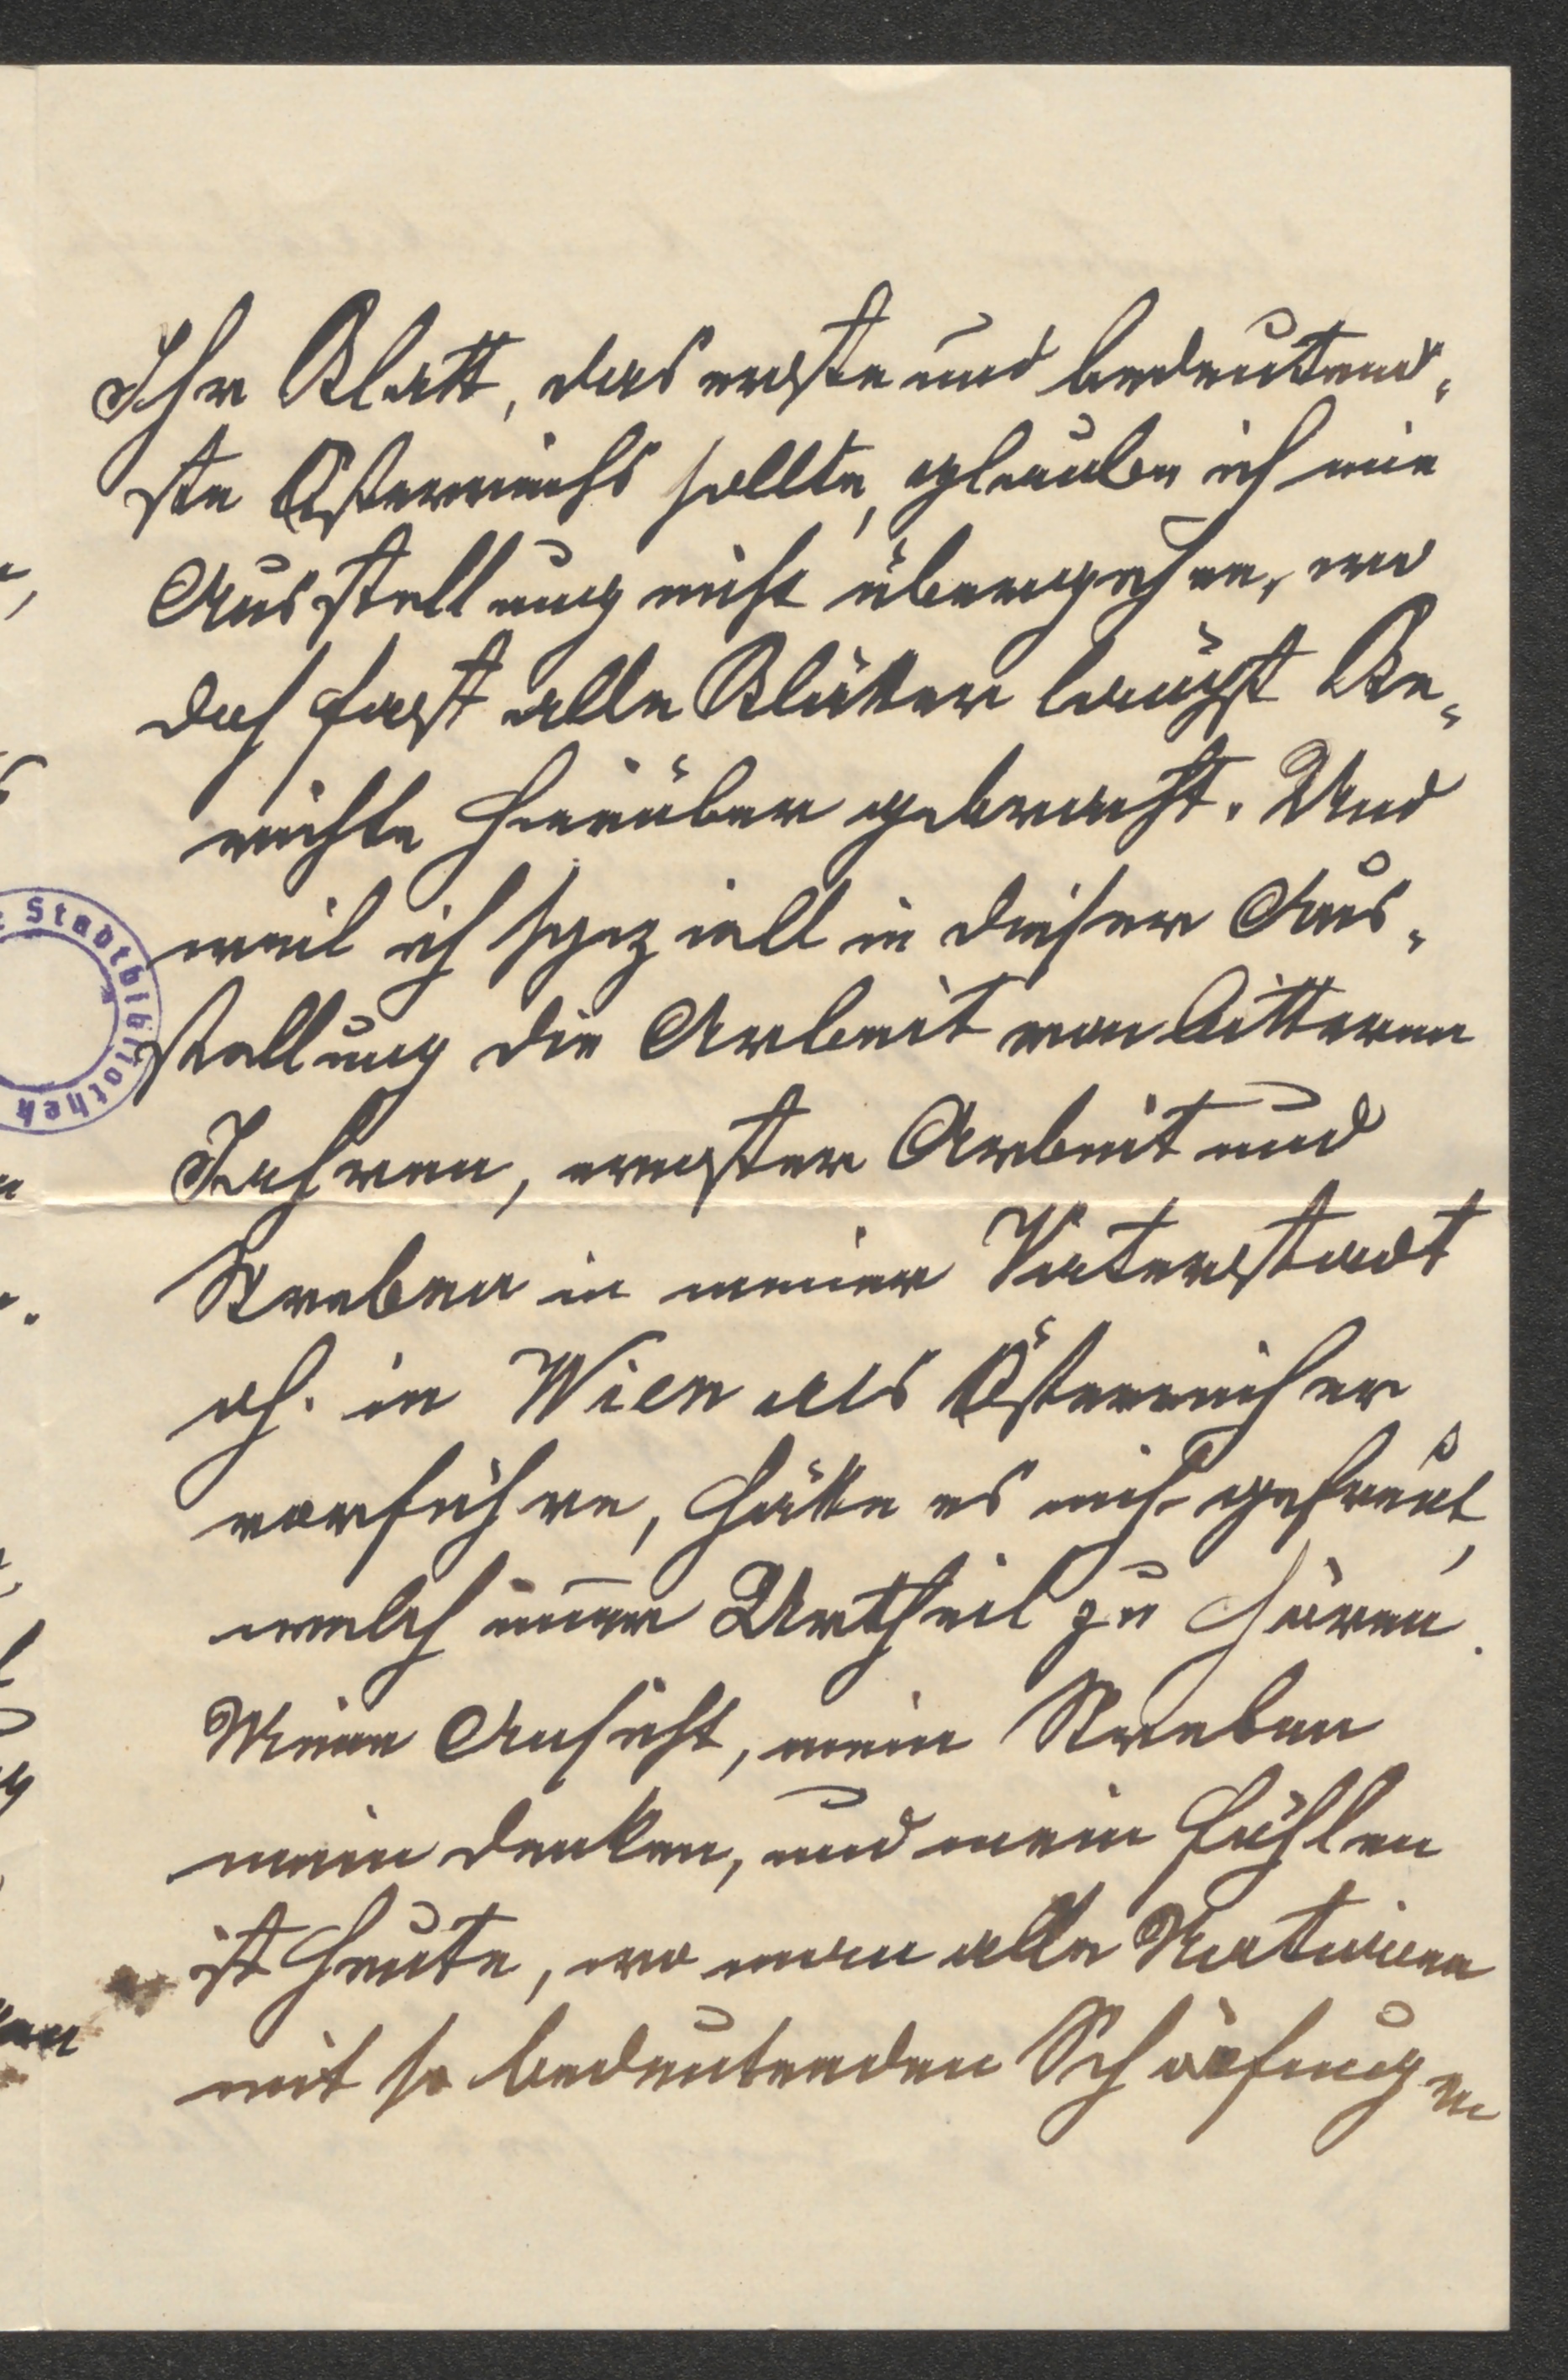 Ihr Blatt, das erste und bedeutend-
ste Österreichs sollte, glaube ich eine
Ausstellung nicht übergehen, wo
doch fast alle Blätter längst Be-
richte hierüber gebracht. Und
weil ich speziell in dieser Aus-
stellung die Arbeit von bitteren
Jahren, ernster Arbeit und
Streben in meiner Vaterstadt
dh. in Wien als Österreicher
vorführe, hätte es mich gefreut,
welch immer Urtheil zu hören.
Meine Ansicht, mein Streben
mein Denken, und mein Fühlen
ist heute, wo man alle Nationen
mit so bedeutenden Schöpfungen
Stadtbibliothek